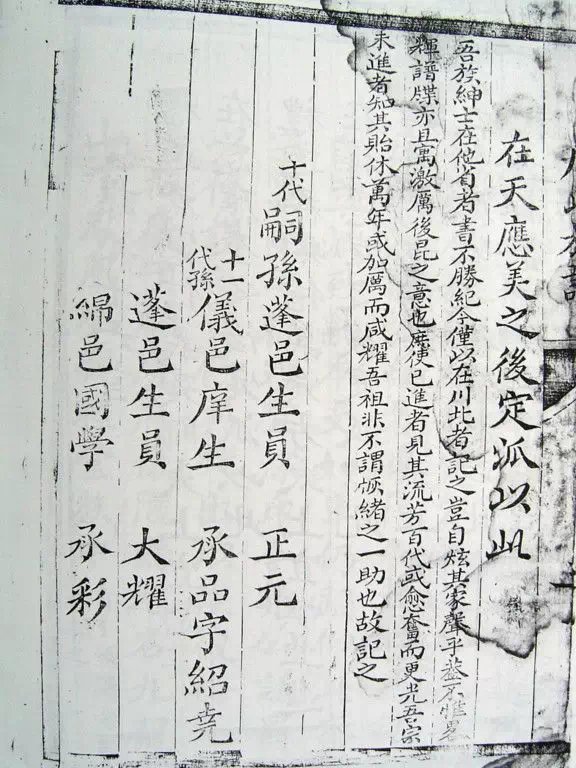 在天應美之後定派以此
吾族紳士在他省者書不勝紀今僅以在川北者記之豈自炫其家聲乎蓋不惟
譜牒亦且寓激厲後昆之意也庶使已進者見其流芳百代或愈奮而更光吾宗
未進者知其貽休萬年或加厲而咸耀吾祖非不謂恢緒之一助也故記之
十代嗣孫蓬邑生員 正元
十一代孫儀邑庠生 承品字紹堯
蓬邑生員 大耀
綿邑國學 承彩